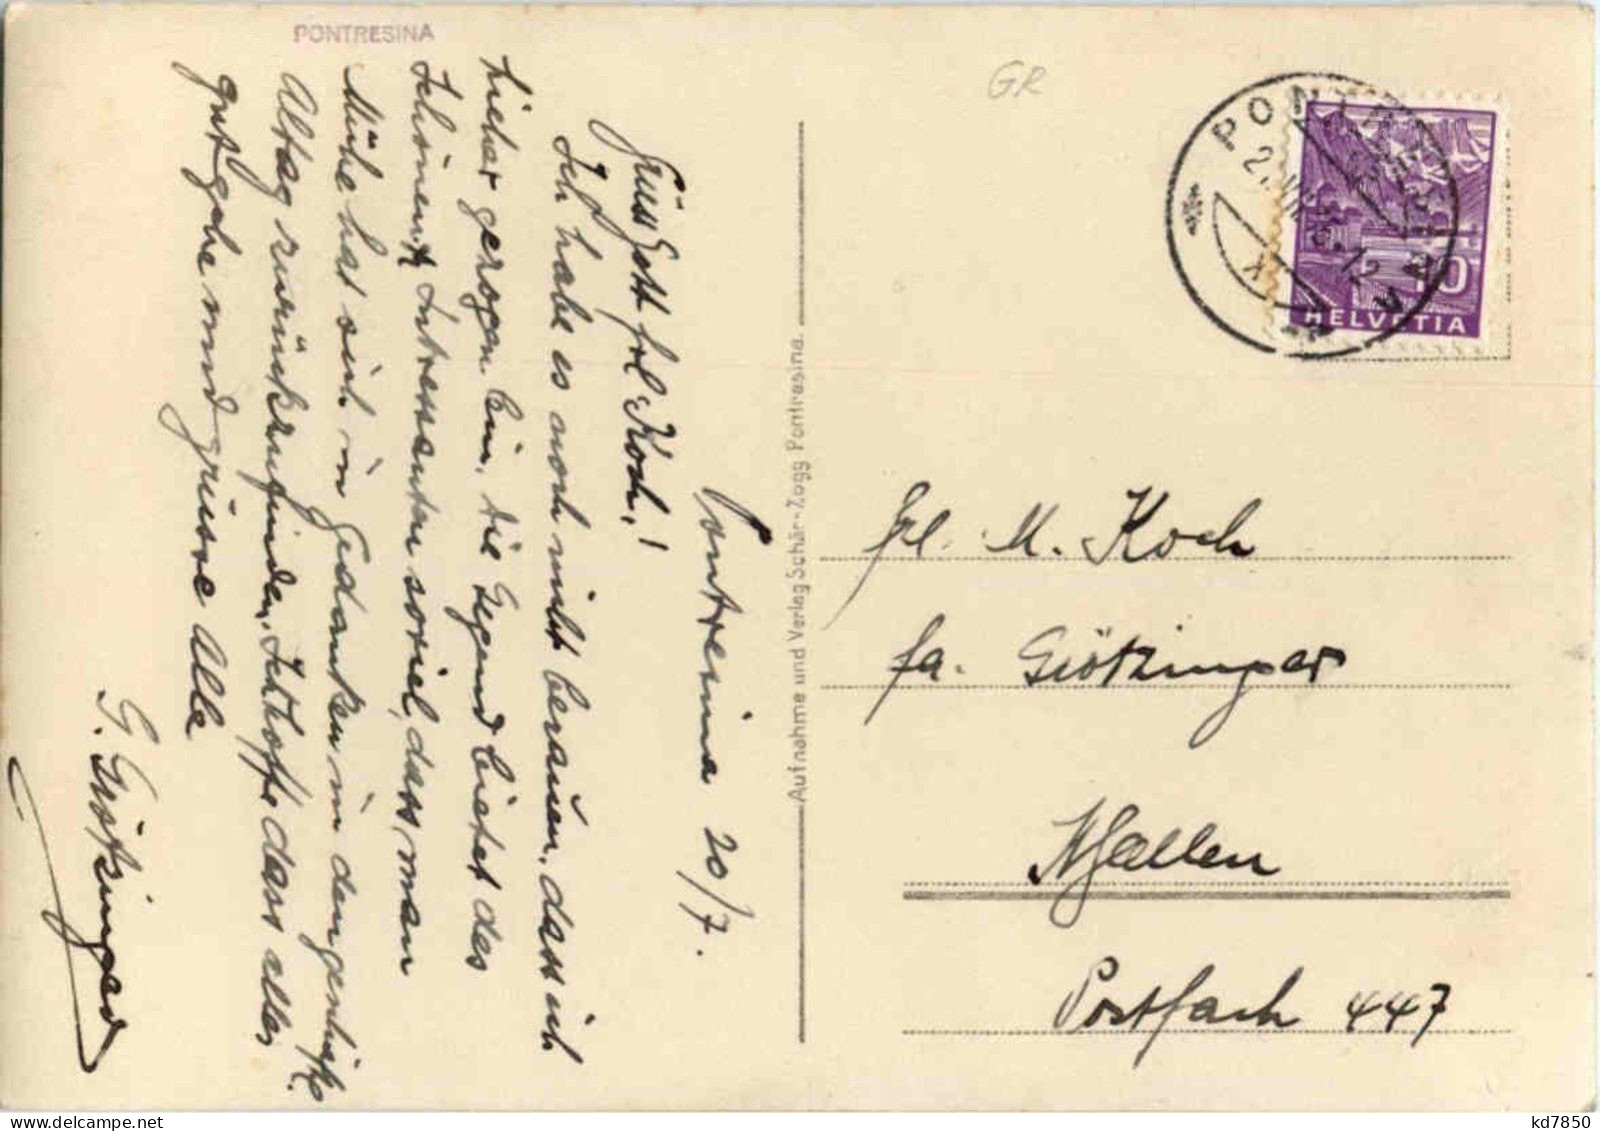 PONTRESINA
GR
Pontresina 20/7.
Grüss Gott frl. Koch!
Ich habe es noch nicht beraüen, dass ich
hieher gezogen bin, die Gegend bietet des
Schönen & Intressanten soviel, dass man
Mühe hat sich in Gedanken in den
Alltag zurückzufinden. Ich hoffe dass alles
gut gehe und grüsse Alle
G. Götzinger
Aufnahme und Verlag Schär-Zogg Pontresina.
PONTRESINA
HELVETIA
10
frl. M. Koch
fa. Götzinger
St. Gallen
Postfach 447
kd7850